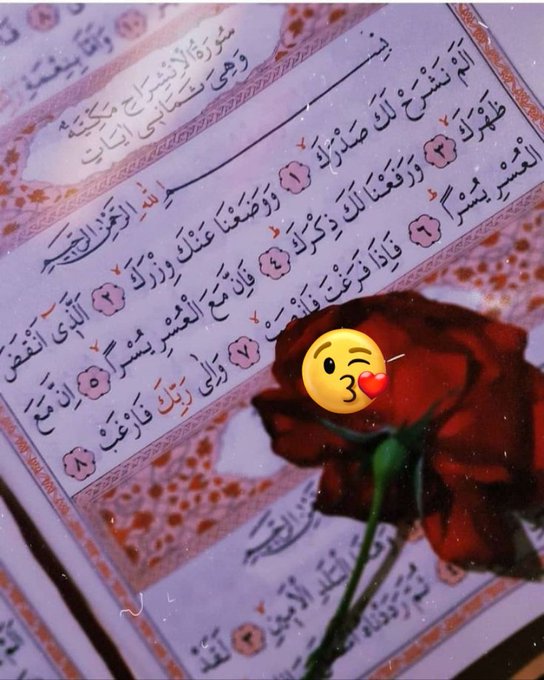 ١٠ وَاَمَّا بِنِعْمَةِ
سُورَةُ الْاِنْشِرَاحِ مَكِّيَّةٌ
وَهِيَ ثَمَانِي اٰيَاتٍ
بِسْمِ اللهِ الرَّحْمٰنِ الرَّحِيمِ
اَلَمْ نَشْرَحْ لَكَ صَدْرَكَ ١ وَوَضَعْنَا عَنْكَ وِزْرَكَ ٢ اَلَّذٖى اَنْقَضَ
ظَهْرَكَ ٣ وَرَفَعْنَا لَكَ ذِكْرَكَ ٤ فَاِنَّ مَعَ الْعُسْرِ يُسْرًا ٥ اِنَّ مَعَ
الْعُسْرِ يُسْرًا ٦ فَاِذَا فَرَغْتَ فَانْصَبْ ٧ وَاِلٰى رَبِّكَ فَارْغَبْ ٨
الرَّحِيمِ
الْبَلَدِ الْاَمِينِ ٣ لَقَدْ
ثُمَّ رَدَدْنَاهُ